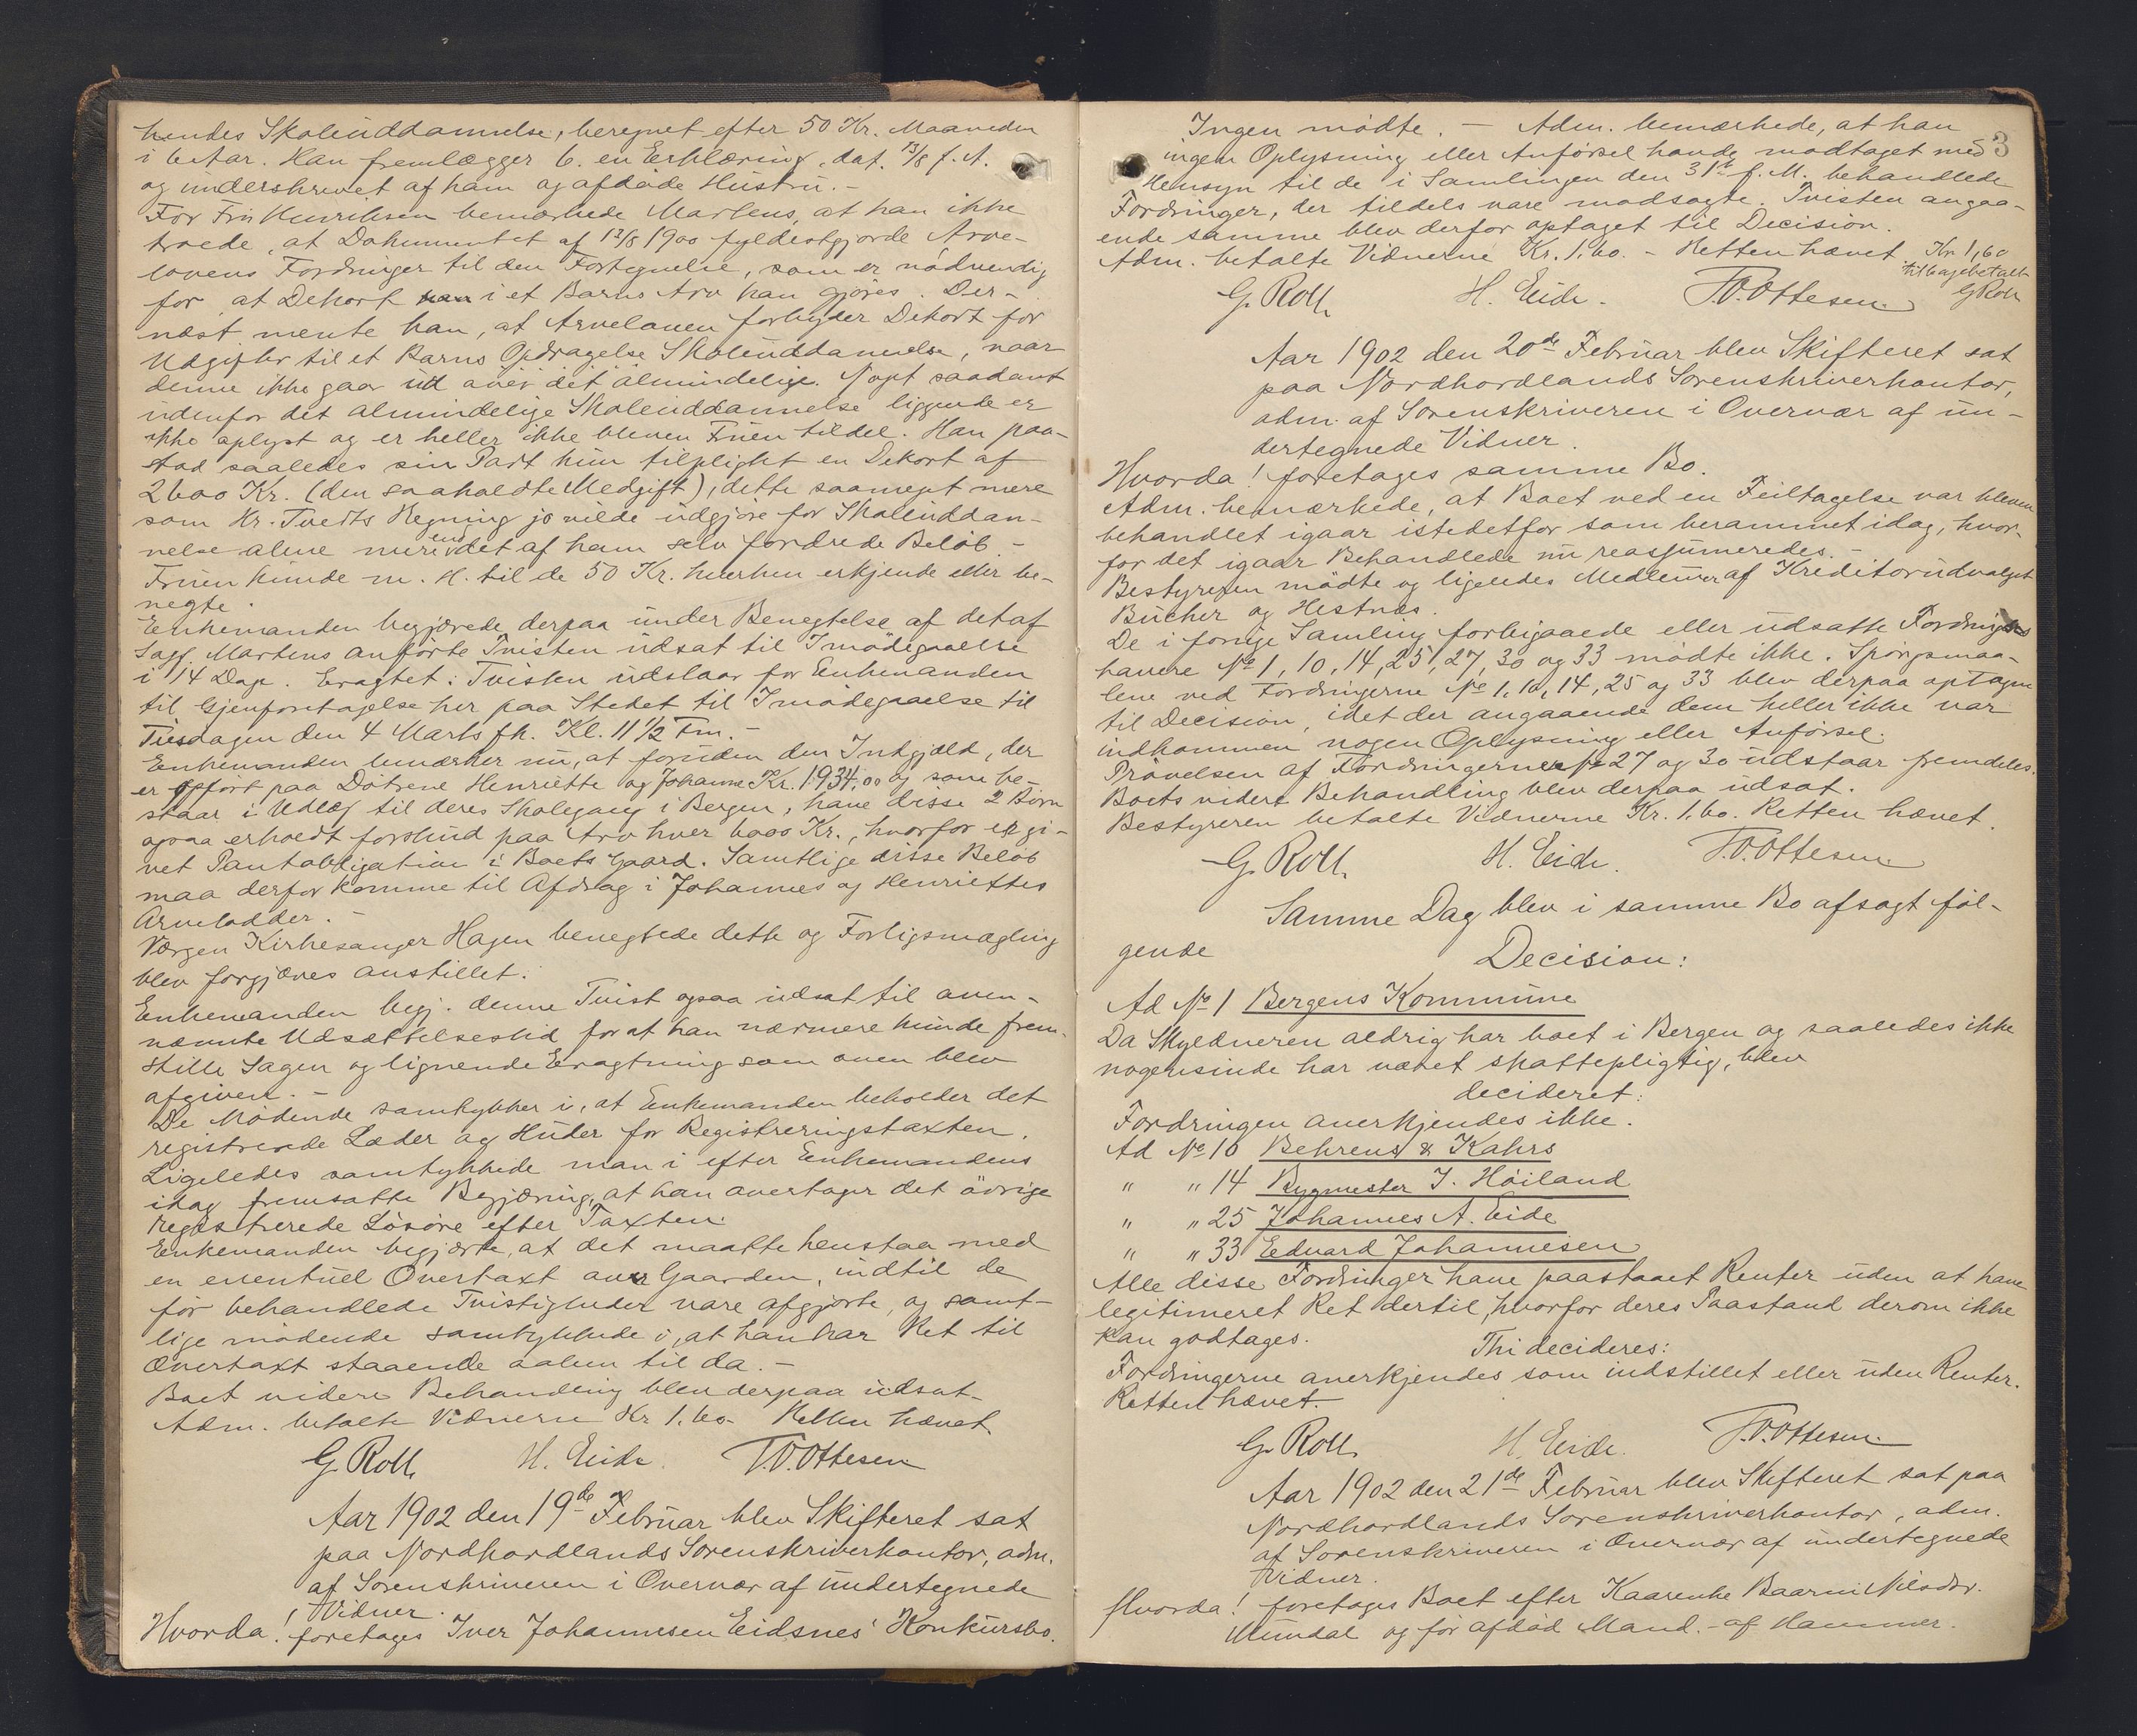 hendes Skoleuddannelse, beregnet efter 50 Kr. Maaneden
i 6 Aar. Han fremlægger 6. en Erklæring, dat. 13/8 f. A.
og underskrevet af ham og afdøde Hustru.-
For Fru Henriksen bemærkede Martens, at han ikke
troede, at Dokumentet af 13/8 1900 fyldestgjorde Arve-
lovens Fordringer til den Fortegnelse, som er nødvendig
for, at Dekort i et Barns Arv kan gjøres. Der-
næst mente han, at Arveloven forbyder Dekort for
Udgifter til et Barns Opdragelse Skoleuddannelse, naar
denne ikke gaar ud over det almindelige. Noget saadant
udenfor det almindelige Skoleuddannelse liggende er
ikke oplyst og er heller ikke bleven Fruen tildel. Han paa-
stod saaledes sin Part kun tilpligtet en Dekort af
2600 Kr. (den saakaldte Medgift), dette saameget mere
som Hr. Tvedts Regning jo vilde udgjøre for Skoleuddan-
nelse alene mere end det af ham selv fordrede Beløb.-
Fruen kunde m. H. til de 50 Kr. hverken erkjende eller be-
negte.
Enkemanden begjærede derpaa under Benegtelse af det af
Sagf. Martens anførte Tvisten udsat til Imødegaaelse
i 14 Dage. Eragtet: Tvisten udstaar for Enkemanden
til Gjenforetagelse her paa Stedet til Imødegaaelse til
Tirsdagen den 4 Marts fk. Kl. 11 1/2 Fm.-
Enkemanden bemærker nu, at foruden den Indgjæld, der
er opført paa Døtrene Henriette og Johanne Kr. 1934,00 og som be-
staar i Udlæg til deres Skolegang i Bergen, have disse 2 Børn
ogsaa erholdt forskud paa Arv hver 6000 Kr., hvorfor er gi-
vet Pantobligation i Boets Gaard. Samtlige disse Beløb
maa derfor komme til Afdrag i Johannes og Henriettes
Arvelodder.-
Værgen Kirkesanger Hagen benegtede dette og Forligsmægling
blev forgjæves anstillet.
Enkemanden begj. denne Tvist ogsaa udsat til oven-
nævnte Udsættelsestid for at han nærmere kunde frem-
stille Sagen og lignende Eragtning som oven blev
afgiven.-
De Mødende samtykker i, at Enkemanden beholder det
registrerede Læder og Huder for Registreringstaxten.
Ligeledes samtykkede man i efter Enkemandens
idag fremsatte Begjæring, at han overtager det øvrige
registrerede Løsøre efter Taxten.
Enkemanden begjærte, at det maatte henstaa med
en eventuel Overtaxt over Gaarden, indtil de
før behandlede Tvistigheder vare afgjorte, og samt-
lige mødende samtykkede i, at han har Ret til
Overtaxt staaende aaben til da.-
Boet videre Behandling blev derpaa udsat-
Adm. betalte Vidnerne Kr 1.60. Retten hævet
G. Roll H. Eide. T.O. Ottesen
Aar 1902 den 19de Februar blev Skifteret sat
paa Nordhordlands Sorenskriverkontor, adm.
af Sorenskriveren i Overvær af undertegnede
Vidner.
Hvorda! foretages Iver Johannesen Eidsnes' Konkursbo.
3
Ingen mødte. - Adm. bemærkede, at han
ingen Oplysning eller Anførsel havde modtaget med
Hensyn til de i Samlingen den 31te f. M. behandlede
Fordringer, der tildels vare modsagte. Tvisten angaa-
ende samme blev derfor optaget til Decision.
Adm. betalte Vidnerne Kr. 1.60. - Retten hævet.
Kr 1,60
tilbagebetalt
G Roll
G. Roll H. Eide. T.O. Ottesen
Aar 1902 den 20de Februar blev Skifteret sat
paa Nordhordlands Sorenskriverkontor,
adm. af Sorenskriveren i Overvær af un-
dertegnede Vidner.
Hvorda! foretages samme Bo.
Adm. bemærkede, at Boet ved en Feiltagelse var bleven
behandlet igaar istedetfor som berammet idag, hvor-
for det igaar Behandlede nu reassumeredes.-
Bestyreren mødte og ligeledes Medlemmer af Kreditorudvalget
Bücher og Hestnæs.
De i forrige Samling forbigaaede eller udsatte Fordrings
havere No 1, 10, 14, 25, 27, 30 og 33 mødte ikke. Spørgsmaa-
lene ved Fordringerne No 1, 10, 14, 25 og 33 blev derpaa optagen
til Decision, idet der angaaende dem heller ikke var
indkommen nogen Oplysning eller Anførsel.
Prøvelsen af Fordringerne No 27 og 30 udstaar fremdeles.
Boets videre Behandling blev derpaa udsat.
Bestyreren betalte Vidnerne Kr. 1.60. Retten hævet.
G. Roll. H. Eide. T.O. Ottesen
Samme Dag blev i samme Bo afsagt føl-
gende
Decision:
Ad No 1 Bergens Kommune
Da Skyldneren aldrig har boet i Bergen og saaledes ikke
nogensinde har været skattepligtig, blev
decideret:
Fordringen anerkjendes ikke.
Ad No 10 Behrens & Kahrs
" " 14 Bygmester J. Høiland
" " 25 Johannes A. Eide
" " 33 Eduard Johannesen
Alle disse Fordringer have paastaaet Renter uden at have
legitimeret Ret dertil, hvorfor deres Paastand derom ikke
kan godtages.
Thi decideres:
Fordringerne anerkjendes som indstillet eller uden Renter.
Retten hævet.
G. Roll H. Eide. T.O. Ottesen
Aar 1902 den 21de Februar blev Skifteret sat paa
Nordhordlands Sorenskriverkontor, adm.
af Sorenskriveren i Overvær af undertegnede
Vidner.
Hvorda! foretages Boet efter Kaarenke Baarni Nilsdtr.
Mundal og før afdød Mand.- af Hammer.